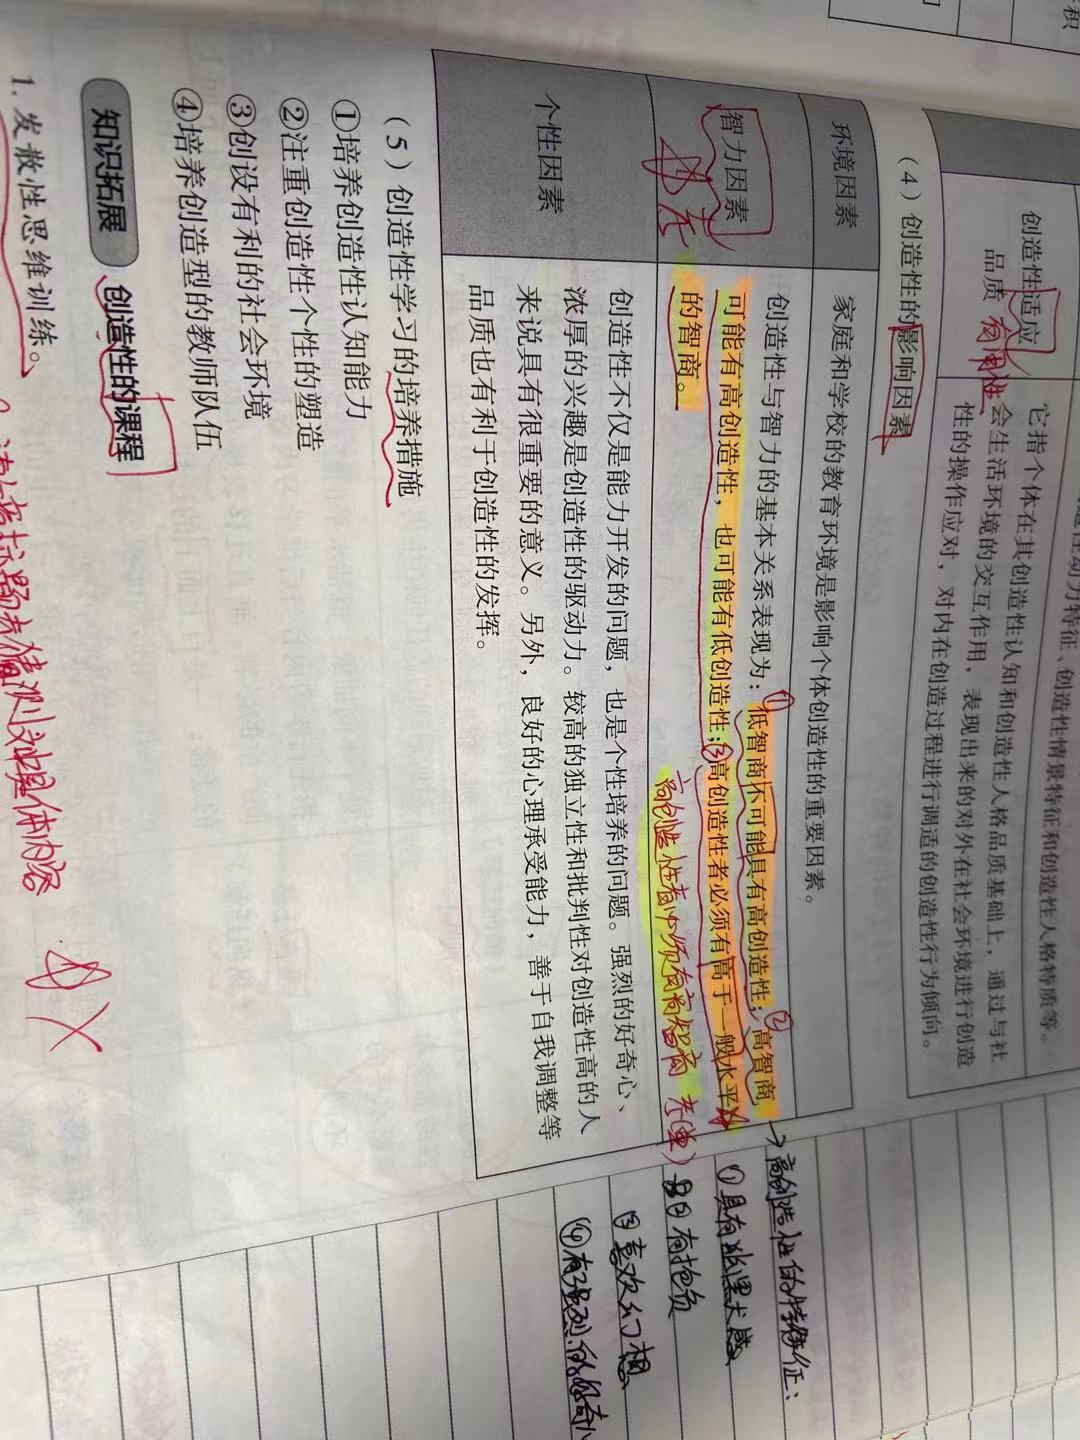 积
造性动力特征、创造性情景特征和创造性人格特质等。
创造性适应
品质 有用性
它指个体在其创造性认知和创造性人格品质基础上，通过与社
会生活环境的交互作用，表现出来的对外在社会环境进行创造
性的操作应对，对内在创造过程进行调适的创造性行为倾向。
（4）创造性的影响因素
环境因素
家庭和学校的教育环境是影响个体创造性的重要因素。
智力因素
创造性与智力的基本关系表现为：①低智商不可能具有高创造性；②高智商
可能有高创造性，也可能有低创造性；③高创造性者必须有高于一般水平
的智商。
高创造性者必须有高智商 考(单)
个性因素
创造性不仅是能力开发的问题，也是个性培养的问题。强烈的好奇心、
浓厚的兴趣是创造性的驱动力。较高的独立性和批判性对创造性高的人
来说具有很重要的意义。另外，良好的心理承受能力，善于自我调整等
品质也有利于创造性的发挥。
→高创造性的特征：
①具有幽默感
②有抱负
③喜欢幻想
④有强烈的好奇心
（5）创造性学习的培养措施
①培养创造性认知能力
②注重创造性个性的塑造
③创设有利的社会环境
④培养创造型的教师队伍
知识拓展 创造性的课程
1. 发散性思维训练。